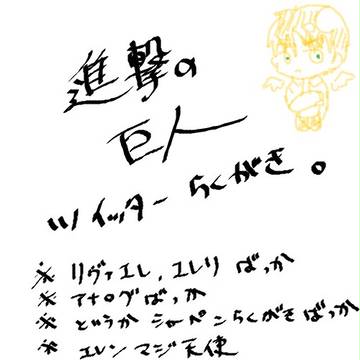 進撃の
巨人
ツイッターらくがき。
※ リヴァエレ、エレリ ばっか
※ アナログばっか
※ どうか シャーペンらくがきばっか
※ エレン マジ 天使